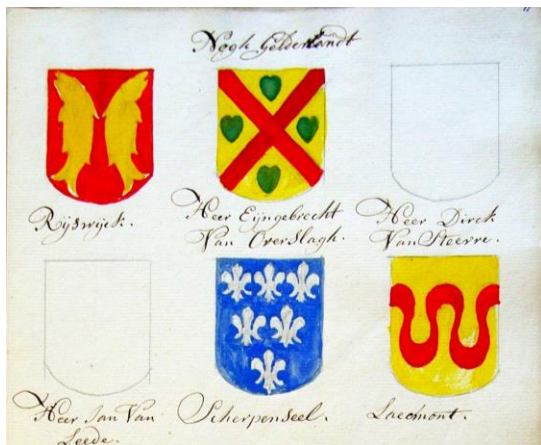 Nogh Gelderlandt
Rijswijck.
Heer Eijngebrecht
Van Overslagh.
Heer Dirck
Van Steerre.
Heer Jan Van
Leede.
Scherpenseel.
Laecmont.